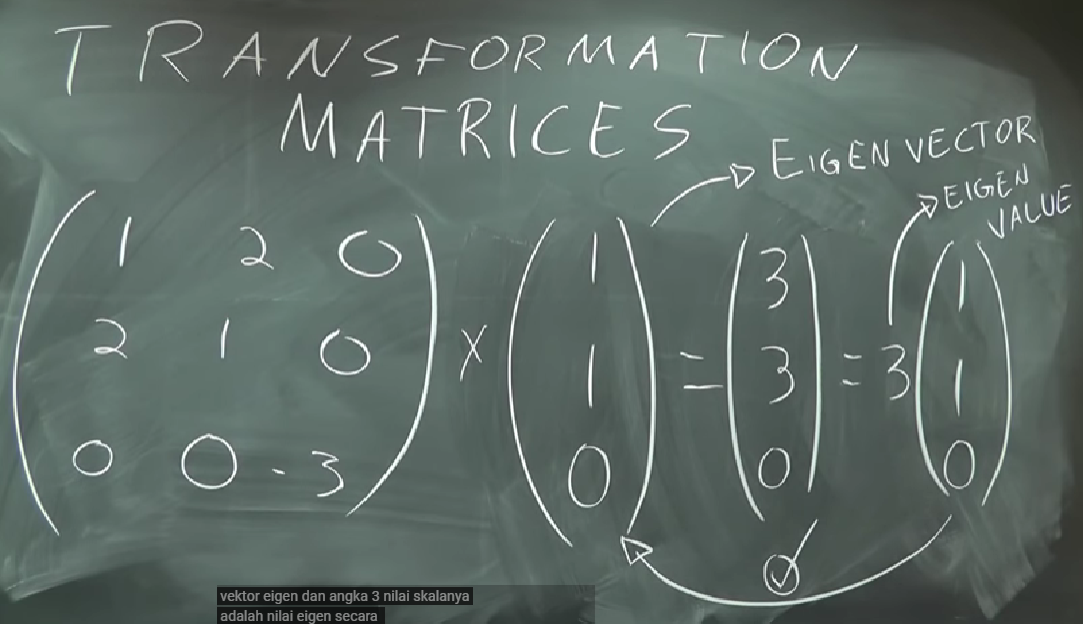 TRANSFORMATION
MATRICES
EIGEN VECTOR
EIGEN
VALUE
1 2 0 1 3 1
2 1 0 × 1 = 3 = 3 1
0 0 -3 0 0 0
vektor eigen dan angka 3 nilai skalanya
adalah nilai eigen secara